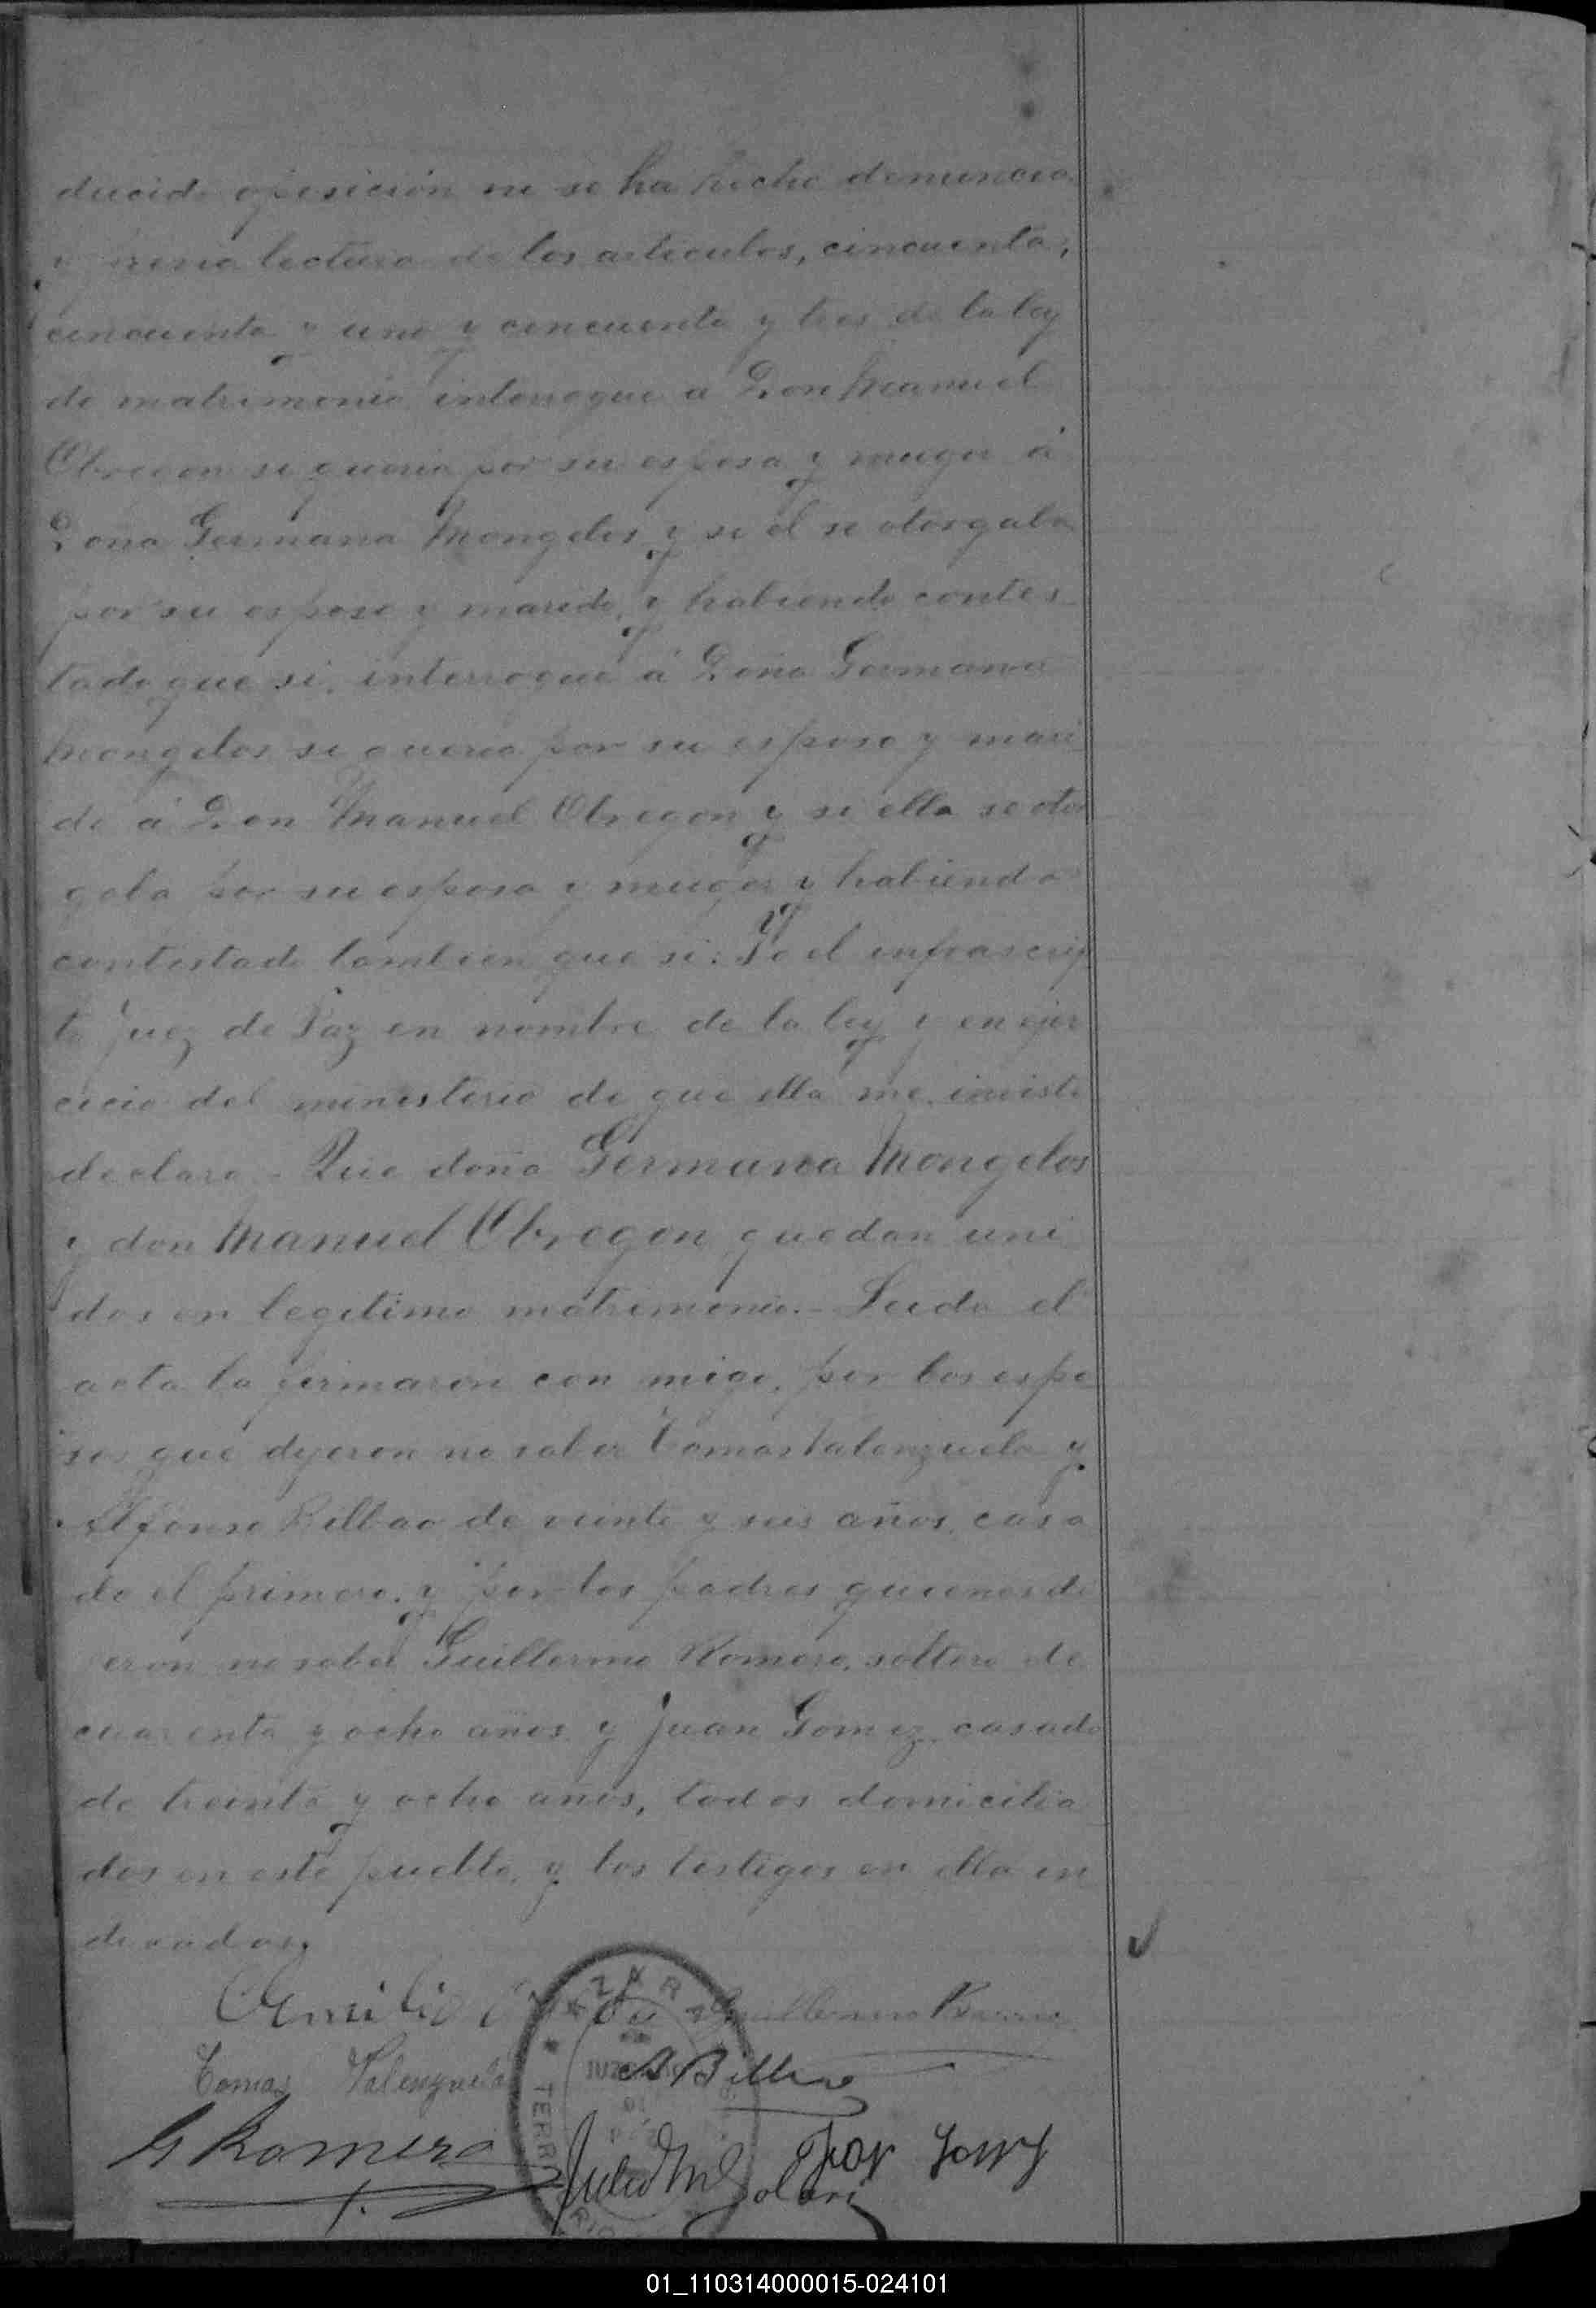 ducido oposición ni se ha hecho denuncia
y previa lectura de los articulos, cincuenta,
cincuenta y uno y cincuenta y tres de la ley
de matrimonio interrogue a Don Manuel
Obregon si queria por su esposa y muger á
Doña Germana Mongelos y si el se otorgaba
por su esposo y marido, y habiendo contes
tado que si, interrogue á Doña Germana
Mongelos si queria por su esposo y mari
do á Don Manuel Obregon y si ella se otor
gaba por su esposa y muger y habiendo
contestado tambien que si: Yo el infrascrip
to Juez de Paz en nombre de la ley y en ejer
cicio del ministerio de que ella me inviste
declaro - Que doña Germana Mongelos
y don Manuel Obregon quedan uni
dos en legitimo matrimonio. - Leida el
acta la firmaron con migo, por los espo
sos que dijeron no saber Tomas Valenzuela y
Alfonso Bilbao de veinte y seis años, casa
do el primero, y por los padres quienes di
eron no saber Guillermo Romero, soltero de
cuarenta y ocho años y Juan Gomez, casado
de treinta y ocho años, todos domicilia
dos en este pueblo, y los testigos en ella in
dicados.
Emilio Guillermo Romero
Tomas Valenzuela A Bilbao
G Romero Julio M Solari
AZARA
JUZGADO
DE
TERRITORIO
01_110314000015-024101